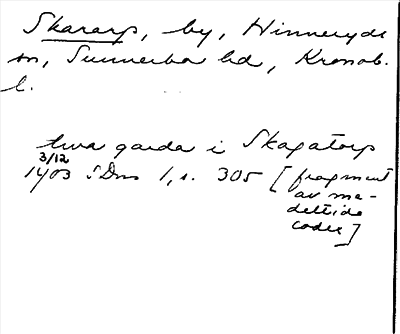 Skararp, by, Hinneryds
sn, Sunnerbo hd, Kronob.
l.
twa garda i Skagatorp
3/12
1403 SDns 1, s. 305 [fragment
av me-
deltida
codex]